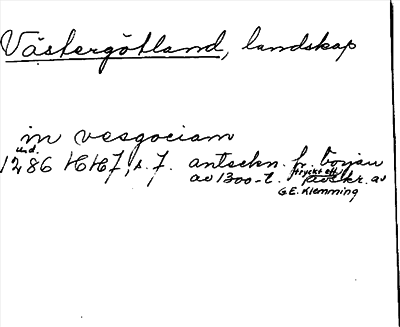 Västergötland, landskap
in vesgociam
und.
1286 HH7, s. 7. antechn. fr. början
av 1300-t. tryckt eft. avskr. av
G.E. Klemming